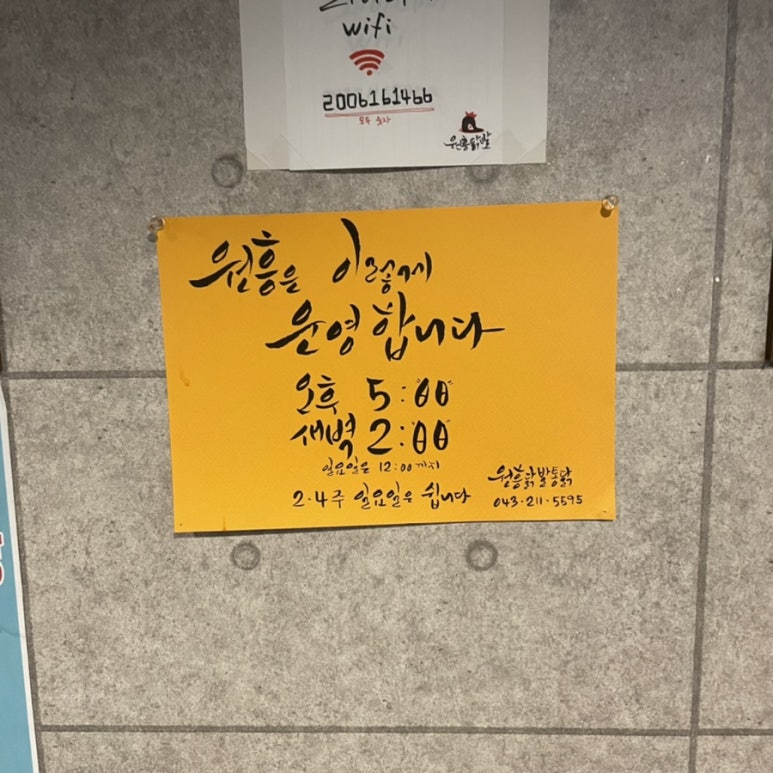 wifi
2006161466
모두 숫자
원흥닭발
원흥은 이렇게
운영합니다
오후 5:00
새벽 2:00
일요일은 12:00까지
2·4주 일요일은 쉽니다
원흥닭발통닭
043·211·5595